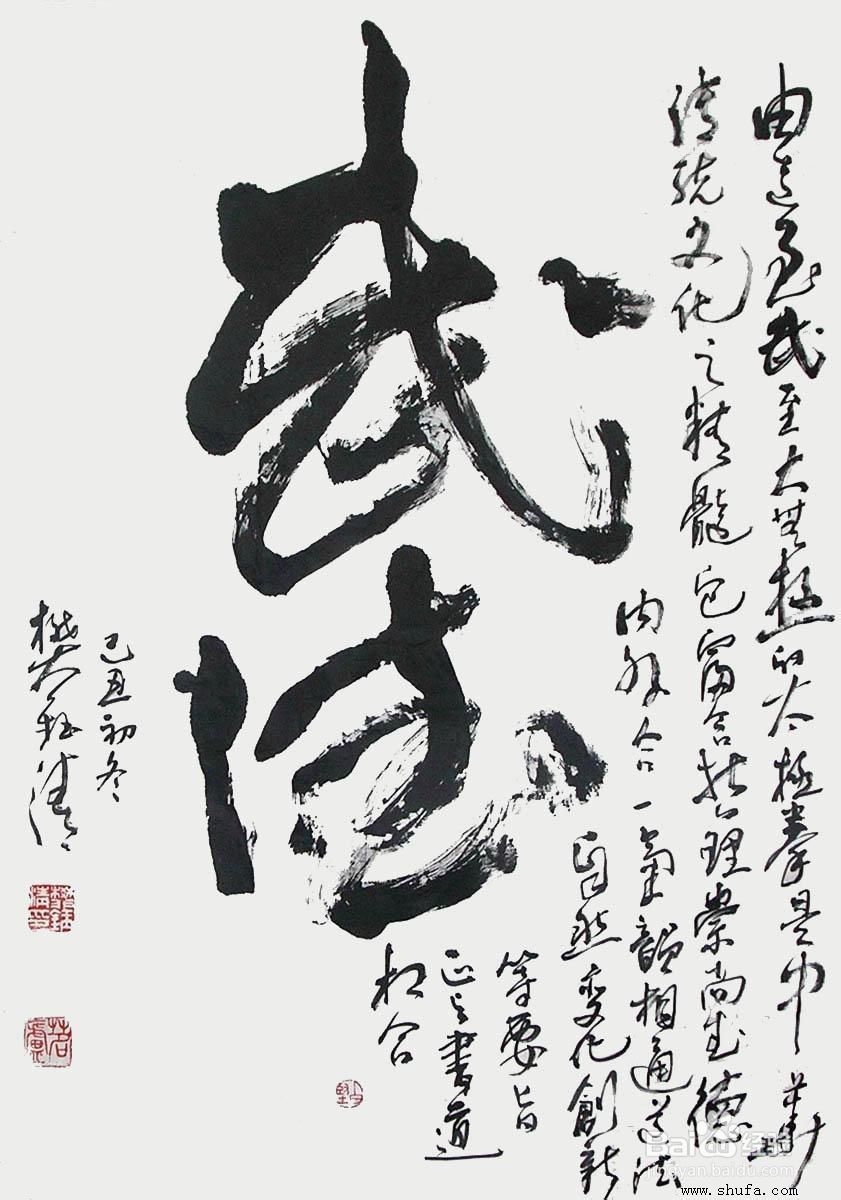 武德
由武至大無極的太極拳是中華
傳統文化之精髓富含哲理崇尚武德
内外合一氣韻相通道法
自然變化創新
等要旨
正与書道
相合
己丑初冬
樊清
Bai 百度 经验
jingyan.baidu.com
www.shufa.com